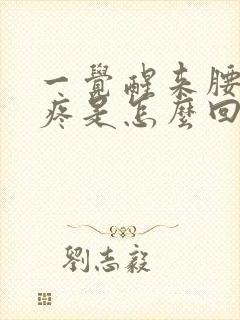 一覺醒來腰
疼是怎麼回
劉志毅